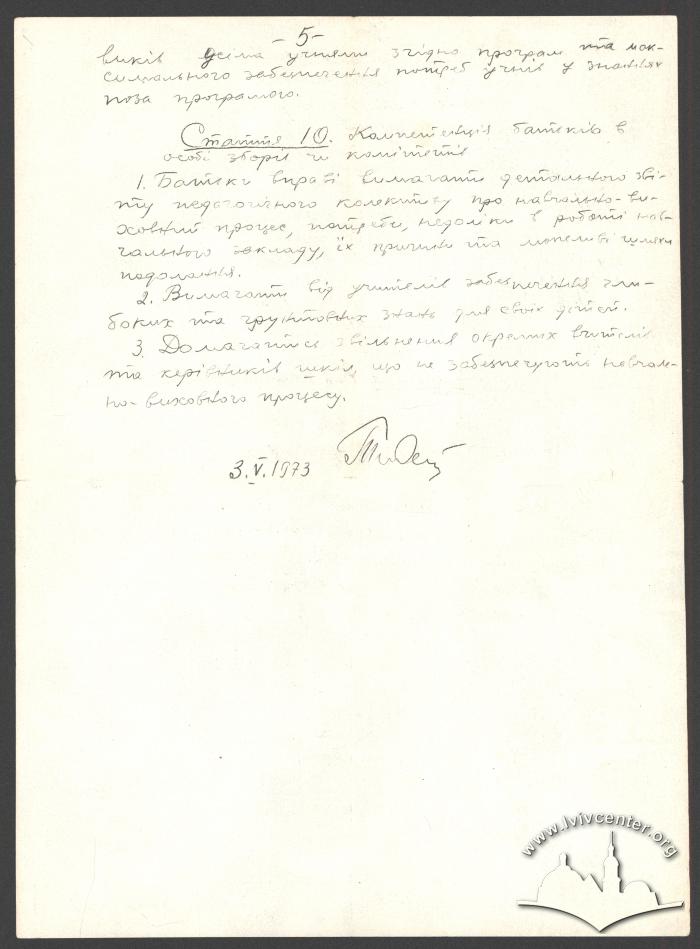 - 5 -
виків усіма учнями згідно програм та мак-
симального забезпечення потреб учнів у знаннях
поза програмою.
Стаття 10. Компетенція батьків в
особі зборів чи комітетів
1. Батьки вправі вимагати детального зві-
ту педагогічного колективу про навчально-ви-
ховний процес, потреби, недоліки в роботі нав-
чального закладу, їх причини та можливі шляхи
подолання.
2. Вимагати від учителів забезпечення гли-
боких та грунтовних знань для своїх дітей.
3. Домагатись звільнення окремих вчителів
та керівників шкіл, що не забезпечують навчаль-
но-виховного процесу.
3.V.1973
www.lvivcenter.org